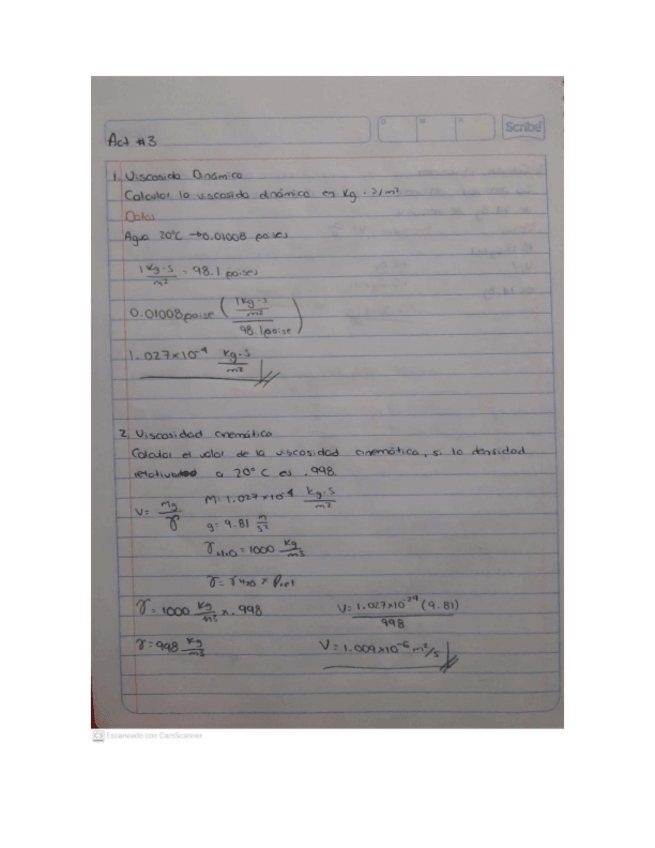 Scribe
D M A
Act #3
1. Viscosida Dinámica
Calcular la viscosida dinámica en Kg - s/m²
Datos
Agua 20°C → 0.01008 poises
1 Kg·s / m² = 98.1 poises
0.01008 poise ( 1 Kg·s / m² / 98.1 poise )
1.027×10⁻⁴ Kg·s / m²
2. Viscosidad cinemática
Calcular el valor de la viscosidad cinemática, si la densidad
relativa a 20°C es .998.
V= Mg / γ M: 1.027×10⁻⁴ Kg·s / m²
g= 9.81 m / s²
γ H₂O = 1000 Kg / m³
γ= γ H₂O × ρrel
γ= 1000 Kg / m³ × .998 V= 1.027×10⁻²⁴ (9.81) / 998
γ= 998 Kg / m³ V= 1.009×10⁻⁶ m²/s
CS Escaneado con CamScanner